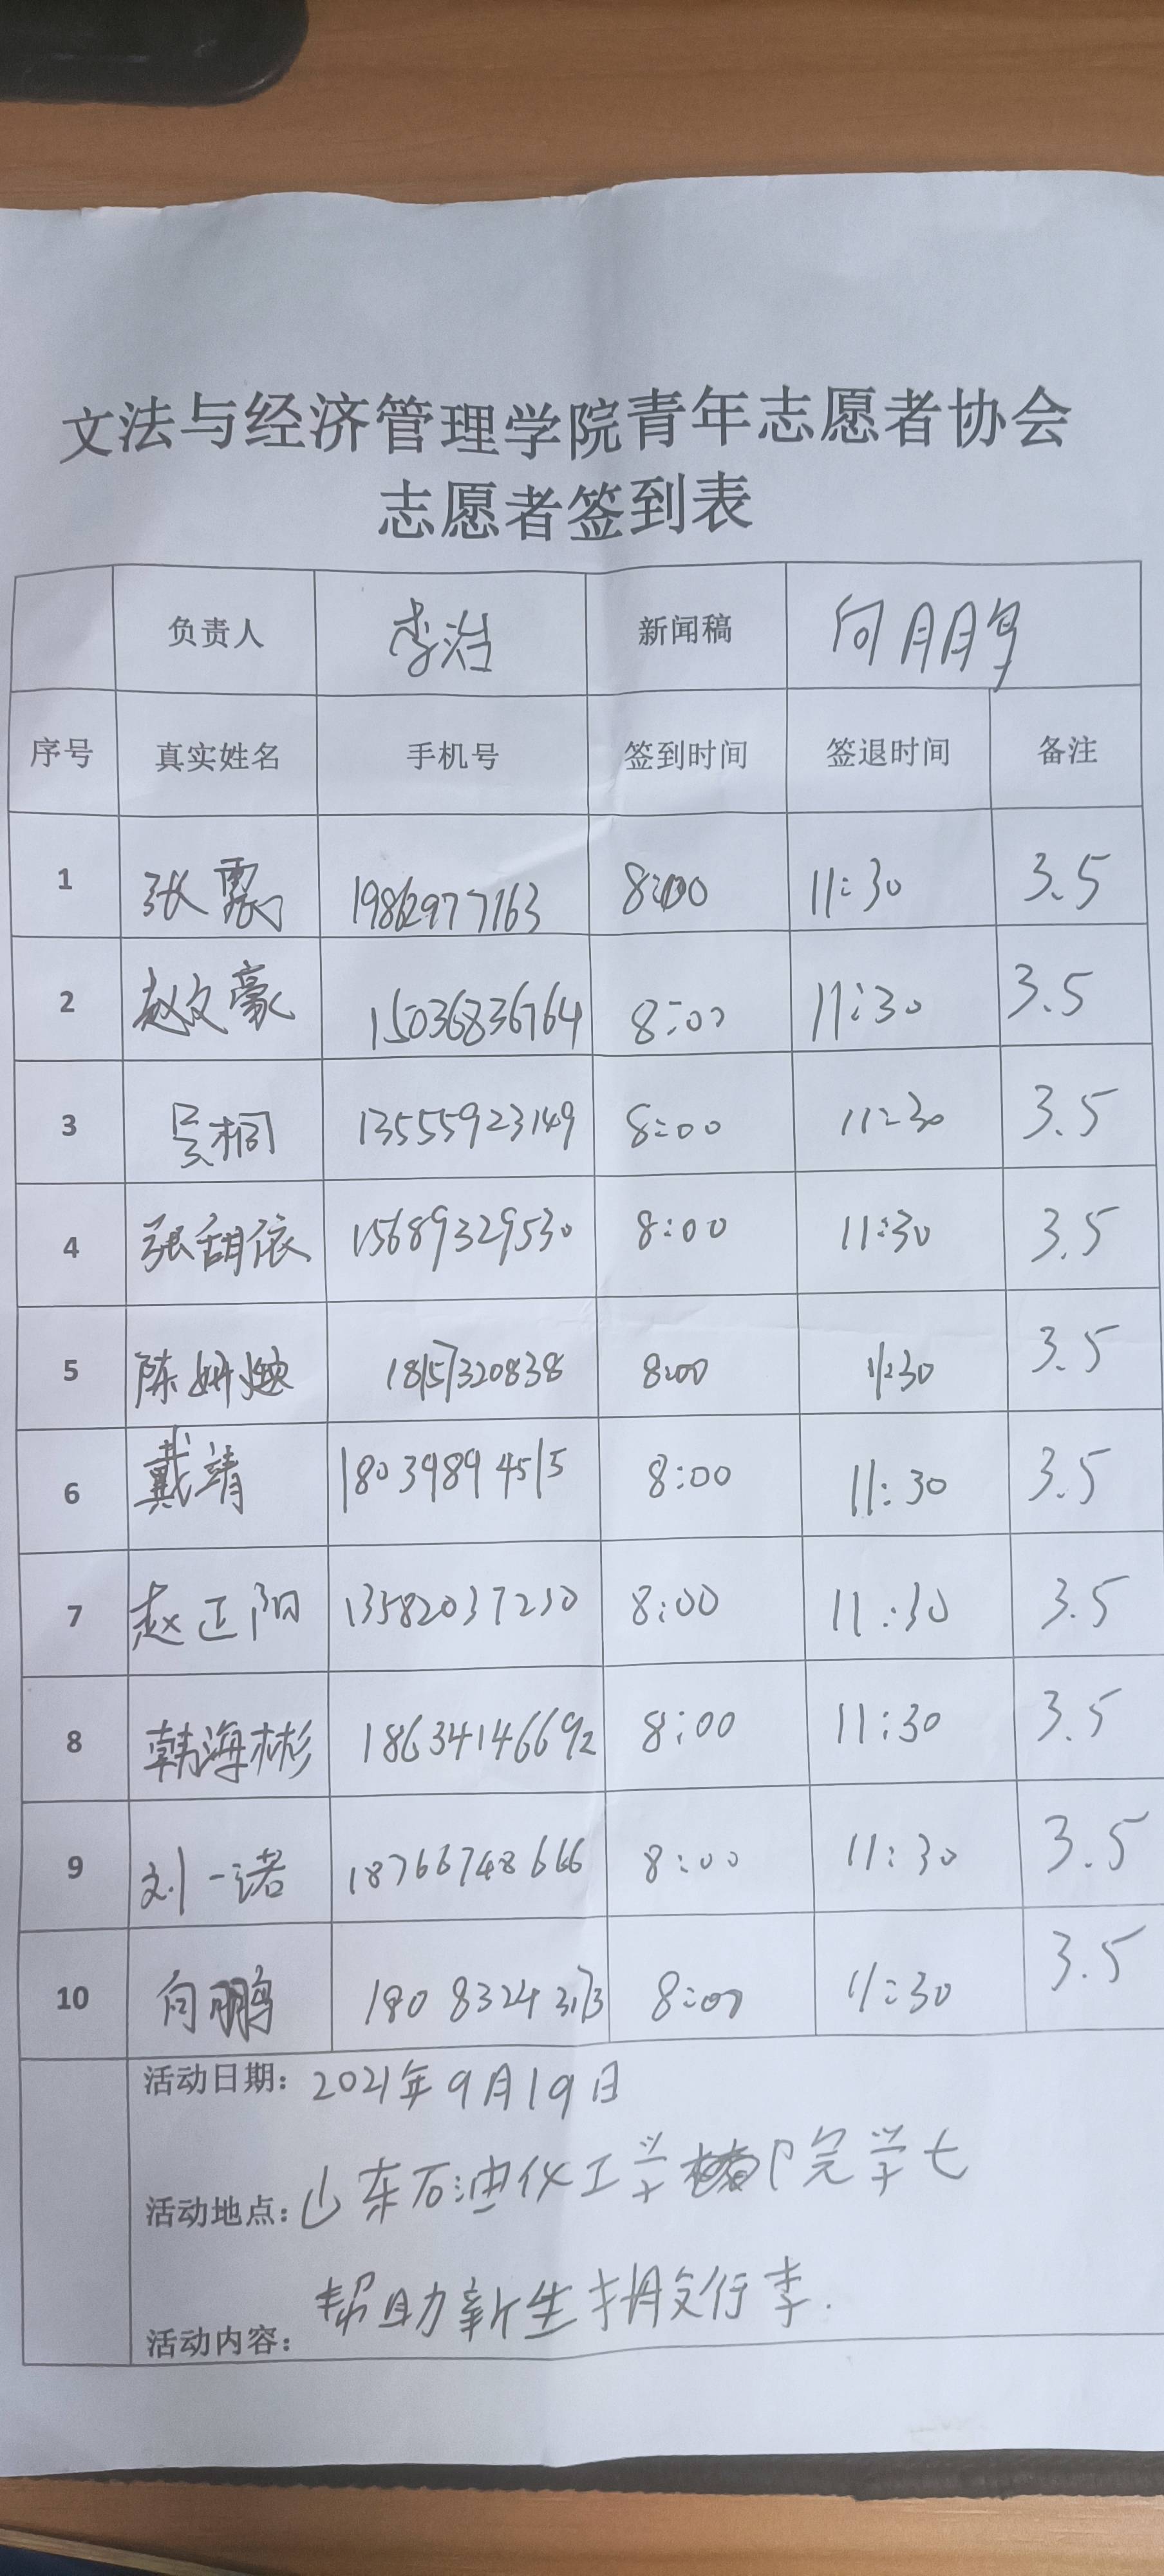 文法与经济管理学院青年志愿者协会
志愿者签到表
负责人 李浩 新闻稿 向鹏
序号 真实姓名 手机号 签到时间 签退时间 备注
1 张震 19862977163 8:00 11:30 3.5
2 赵文豪 15036836764 8:00 11:30 3.5
3 吴桐 13555923149 8:00 11:30 3.5
4 张甜依 15689329530 8:00 11:30 3.5
5 陈姗 18157320838 8:00 11:30 3.5
6 戴靖 18039894515 8:00 11:30 3.5
7 赵正阳 13582037230 8:00 11:30 3.5
8 韩海彬 18634146692 8:00 11:30 3.5
9 刘一诺 18766748666 8:00 11:30 3.5
10 向鹏 8:00 11:30 3.5
活动日期: 2021年9月19日
活动地点: 山东石油化工学院学七
活动内容: 帮助新生搬行李.